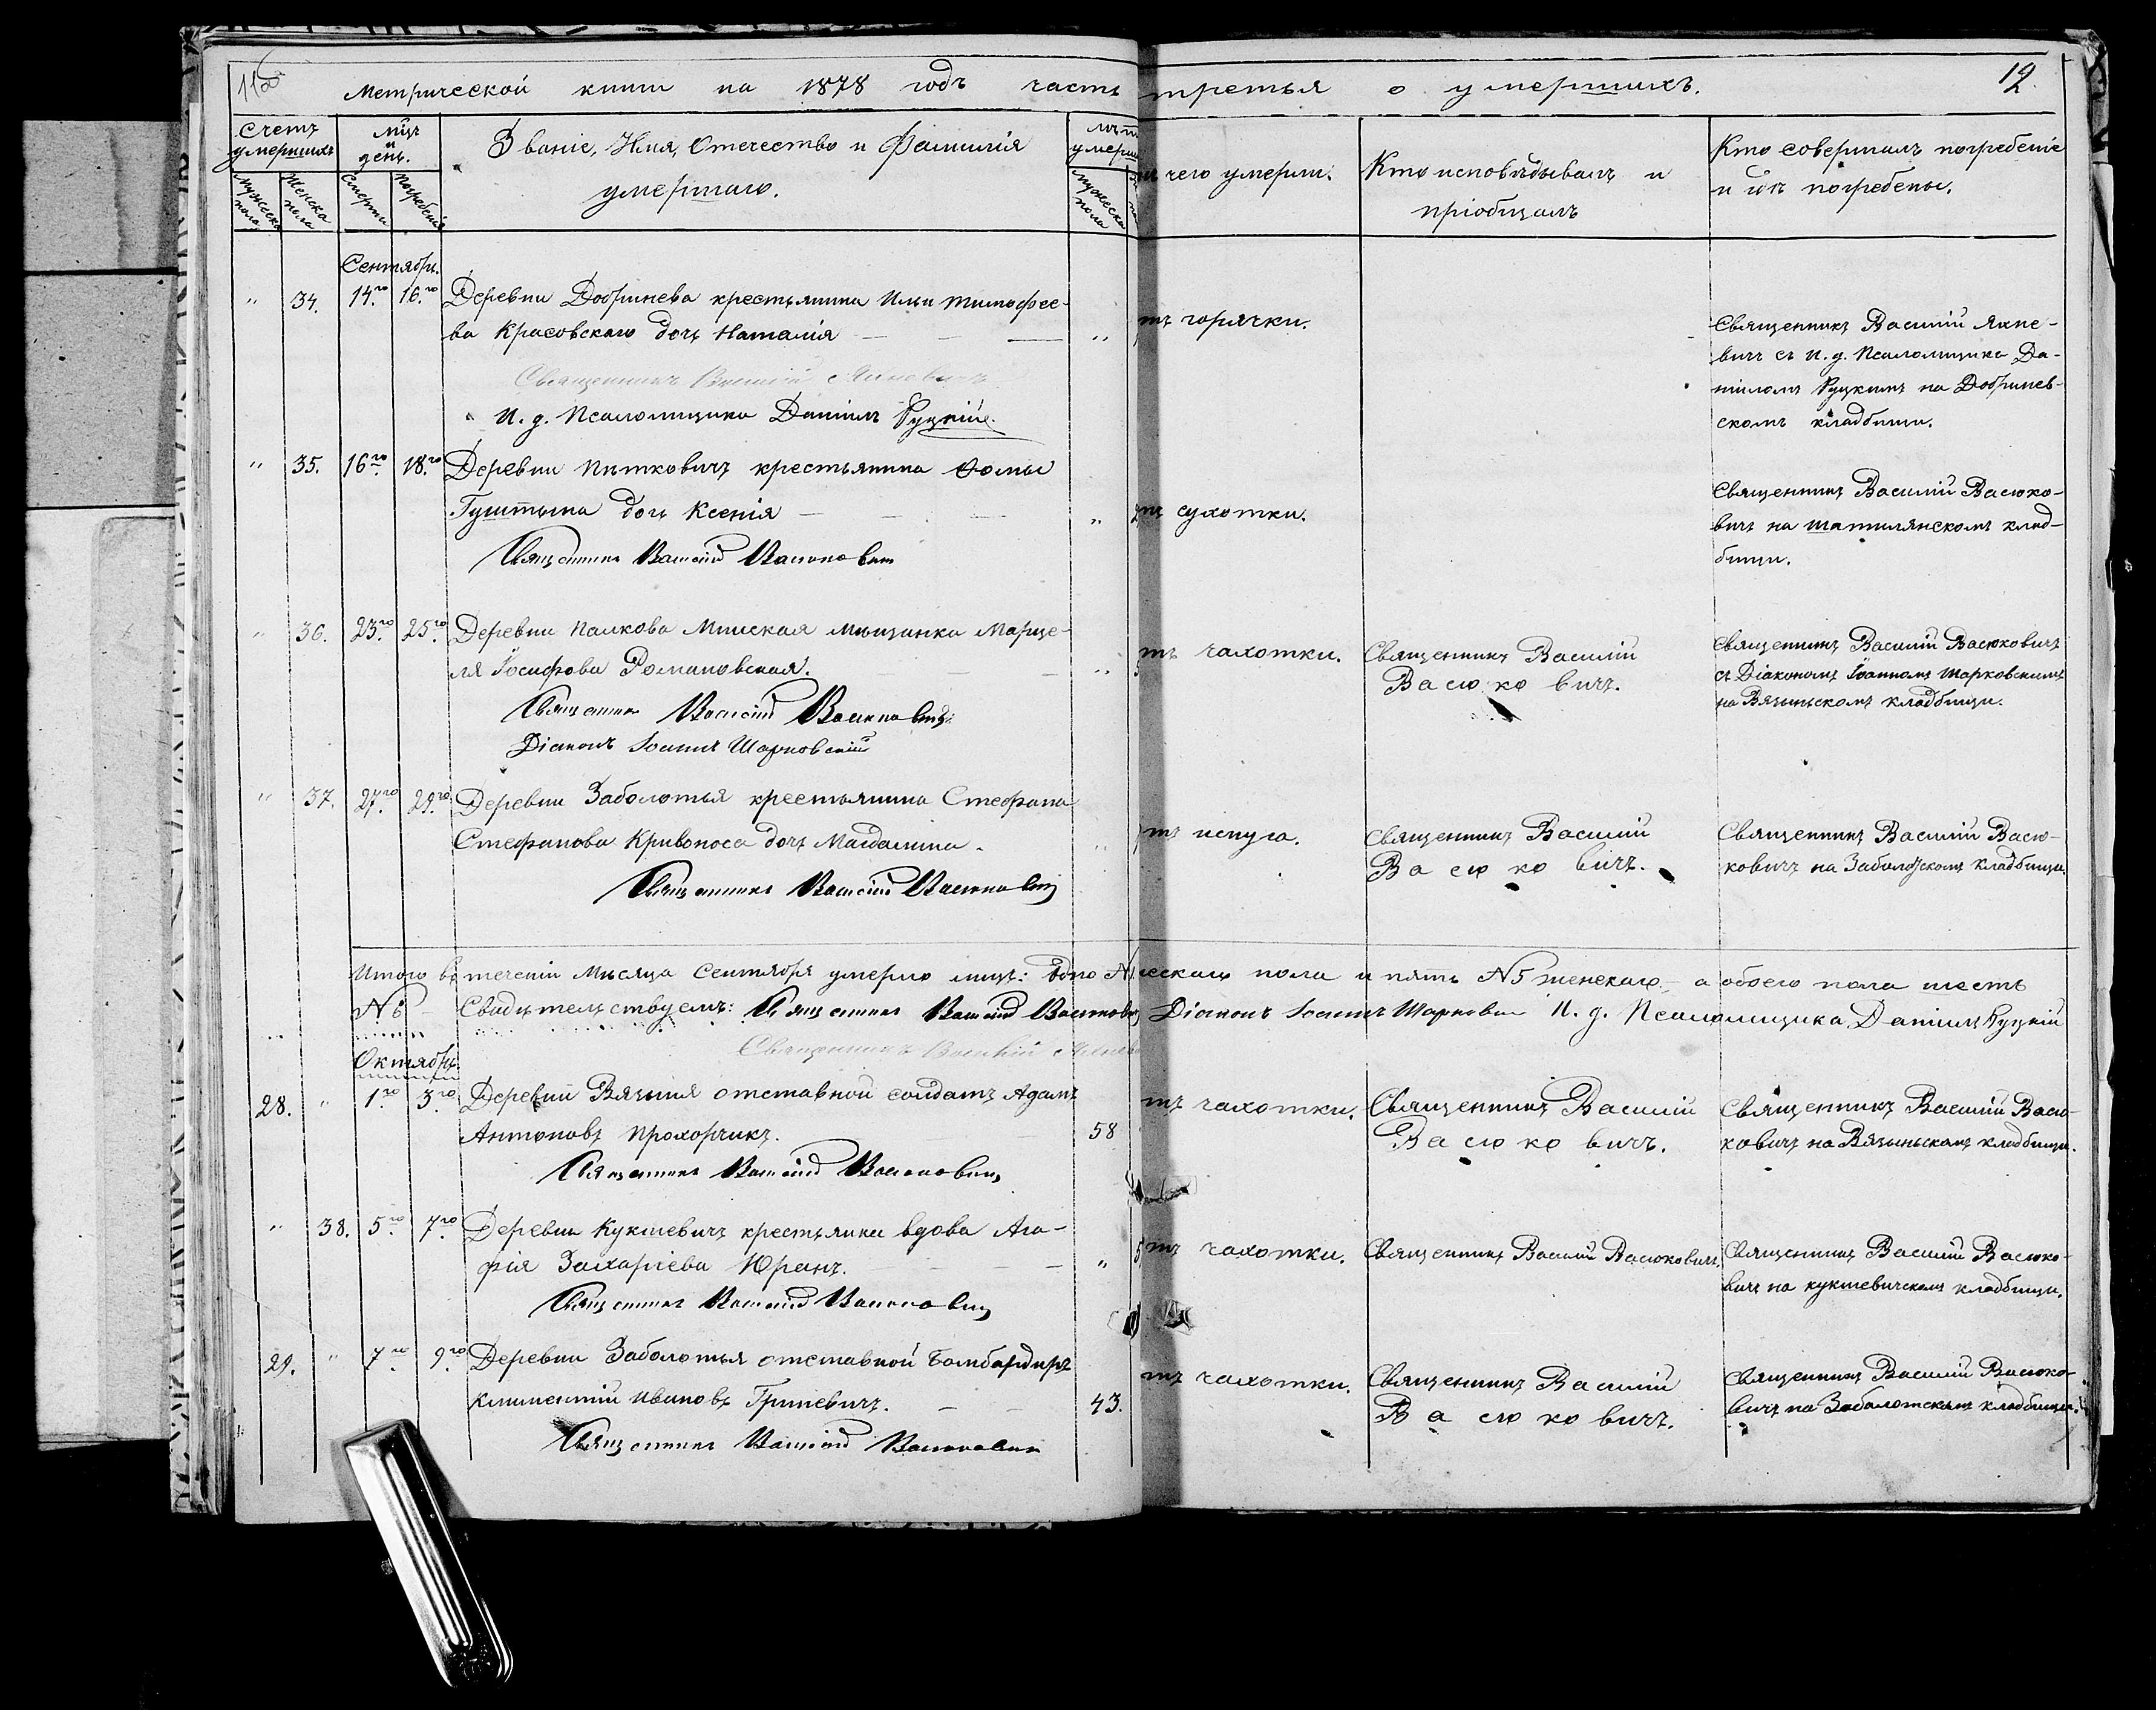 11об.
Метрической книги на 1878 годъ часть третья о умершихъ.
12
Счетъ умершихъ
Мужеска пола
Женска пола
мѣц и день.
Смерти
Погребенія
Званіе, Имя, Отечество и Фамилія
умершаго.
Мужеска пола
чего умерли.
Кто исповѣдывалъ и
пріобщалъ
Кто совершалъ погребеніе
и гдѣ погребены.
Сентябрь.
" 34. 14.го 16.го Деревни Добринева крестьянина Ильи Тимофее-
ва Красовскаго дочь Наталія — — — "
тъ горячки.
Священникъ Василій Якне-
вичъ съ И. д. Псаломщика Да-
ніиломъ Руцкимъ на Добринев-
скомъ кладбищи.
Священникъ Василій
И. д. Псаломщика Даніилъ Руцкій.
" 35. 16го 18.го Деревни Пѣтковичъ крестьянина Ѳомы
дочь Ксенія — — — "
тъ сухотки.
Священникъ Василій Васюко-
вичъ на шатилянскомъ клад-
бищи.
Священникъ Василій Васюковичъ
" 36. 23.го 25.го Деревни Палкова Минская мѣщанка Марце-
ля Іосифова Романовская. — — "
тъ чахотки.
Священникъ Василій
Васюковичъ.
Священникъ Василій Васюковичъ
съ Діакономъ Іоанномъ Шарковскимъ
на Вязыньскомъ кладбищи.
Священникъ Василій Васюковичъ
Діаконъ Іоаннъ Шарковскій
" 37. 27.го 29.го Деревни Заболотья крестьянина Стефана
Стефанова Кривоноса дочь Магдалина. "
тъ испуга.
Священникъ Василій
Васюковичъ.
Священникъ Василій Васю-
ковичъ на Заболотскомъ кладбищи.
Священникъ Василій Васюковичъ
Итого въ теченіи Мѣсяца Сентября умерло лицъ: Одно №ческаго пола и пять №5 женскаго, а обоего пола шесть
№6 – Свидѣтельствуемъ: Священникъ Василій Васюковичъ Діаконъ Іоаннъ Шарковскій И. д. Псаломщика Даніилъ Руцкій
Священникъ Василій
Октябрь.
28. " 1.го 3.го Деревни Вязыня отставной солдатъ Адамъ
Антоновъ Прохорчикъ. — 58
тъ чахотки.
Священникъ Василій
Васюковичъ.
Священникъ Василій Васю-
ковичъ на Вязыньскомъ кладбищи.
Священникъ Василій Васюковичъ
" 38. 5го 7.го Деревни Кукшевичъ крестьянка вдова Ага-
фія Захаріева Юранъ. — — — " 5
тъ чахотки.
Священникъ Василій Васюковичъ.
Священникъ Василій Васюко-
вичъ на кукшевичскомъ кладбищи.
Священникъ Василій Васюковичъ
29. " 7го 9.го Деревни Заболотья отставной Бомбардиръ
Климентій Ивановъ Гриневичъ. — — 43.
тъ чахотки.
Священникъ Василій
Васюковичъ.
Священникъ Василій Васюко-
вичъ на Заболотскомъ кладбищи.
Священникъ Василій Васюковичъ